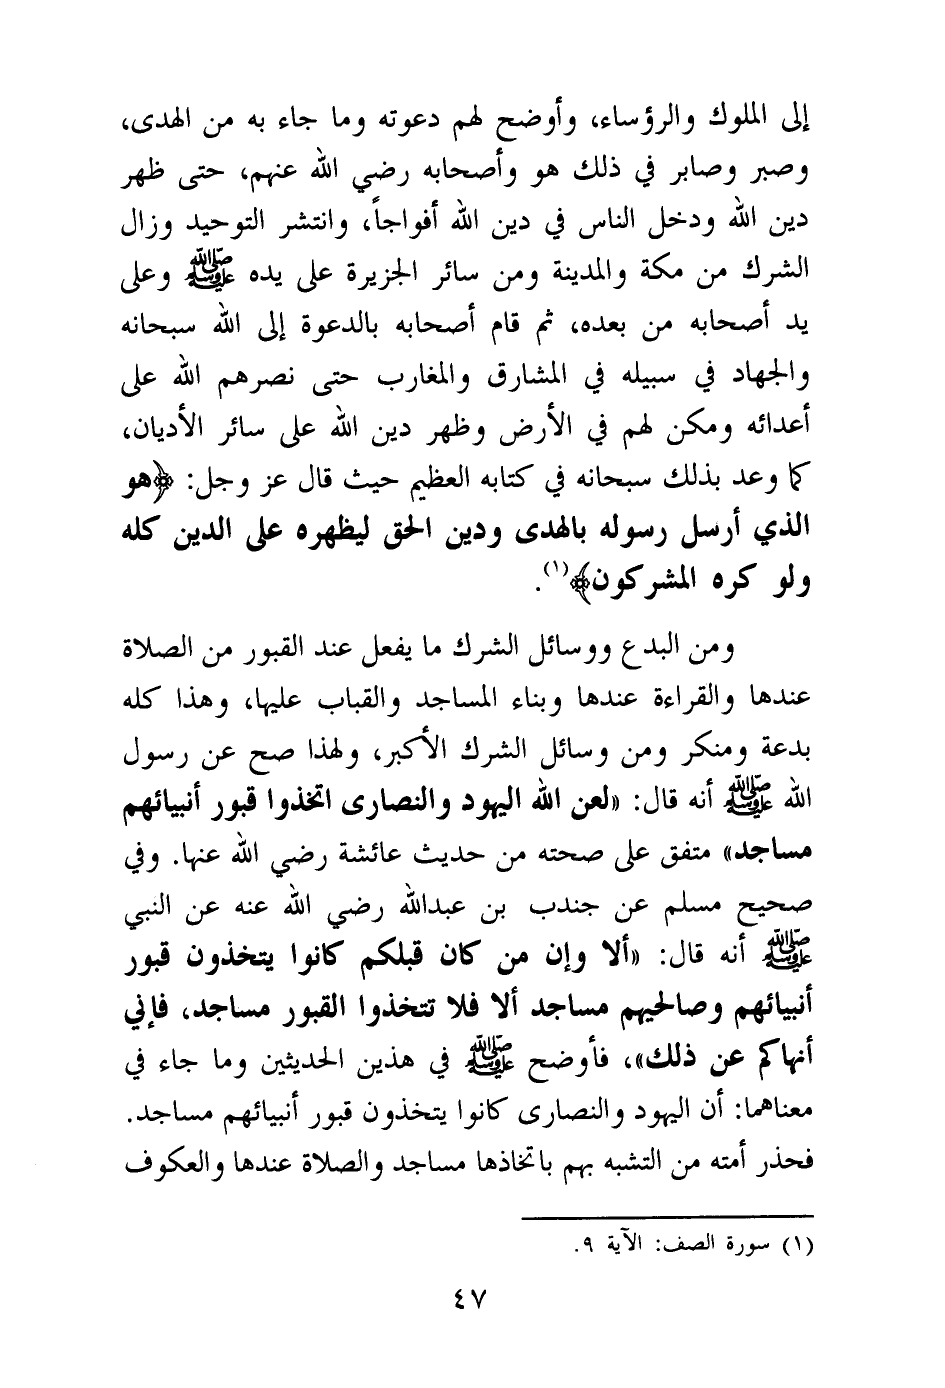 إلى الملوك والرؤساء، وأوضح لهم دعوته وما جاء به من الهدى،
وصبر وصابر في ذلك هو وأصحابه رضي الله عنهم، حتى ظهر
دين الله ودخل الناس في دين الله أفواجاً، وانتشر التوحيد وزال
الشرك من مكة والمدينة ومن سائر الجزيرة على يده ﷺ وعلى
يد أصحابه من بعده، ثم قام أصحابه بالدعوة إلى الله سبحانه
والجهاد في سبيله في المشارق والمغارب حتى نصرهم الله على
أعدائه ومكن لهم في الأرض وظهر دين الله على سائر الأديان،
كما وعد بذلك سبحانه في كتابه العظيم حيث قال عز وجل: ﴿هو
الذي أرسل رسوله بالهدى ودين الحق ليظهره على الدين كله
ولو كره المشركون﴾(١).
ومن البدع ووسائل الشرك ما يفعل عند القبور من الصلاة
عندها والقراءة عندها وبناء المساجد والقباب عليها، وهذا كله
بدعة ومنكر ومن وسائل الشرك الأكبر، ولهذا صح عن رسول
الله ﷺ أنه قال: «لعن الله اليهود والنصارى اتخذوا قبور أنبيائهم
مساجد» متفق على صحته من حديث عائشة رضي الله عنها. وفي
صحيح مسلم عن جندب بن عبدالله رضي الله عنه عن النبي
ﷺ أنه قال: «ألا وإن من كان قبلكم كانوا يتخذون قبور
أنبيائهم وصالحيهم مساجد ألا فلا تتخذوا القبور مساجد، فإني
أنهاكم عن ذلك»، فأوضح ﷺ في هذين الحديثين وما جاء في
معناهما: أن اليهود والنصارى كانوا يتخذون قبور أنبيائهم مساجد.
فحذر أمته من التشبه بهم باتخاذها مساجد والصلاة عندها والعكوف
(١) سورة الصف: الآية ٩.
٤٧